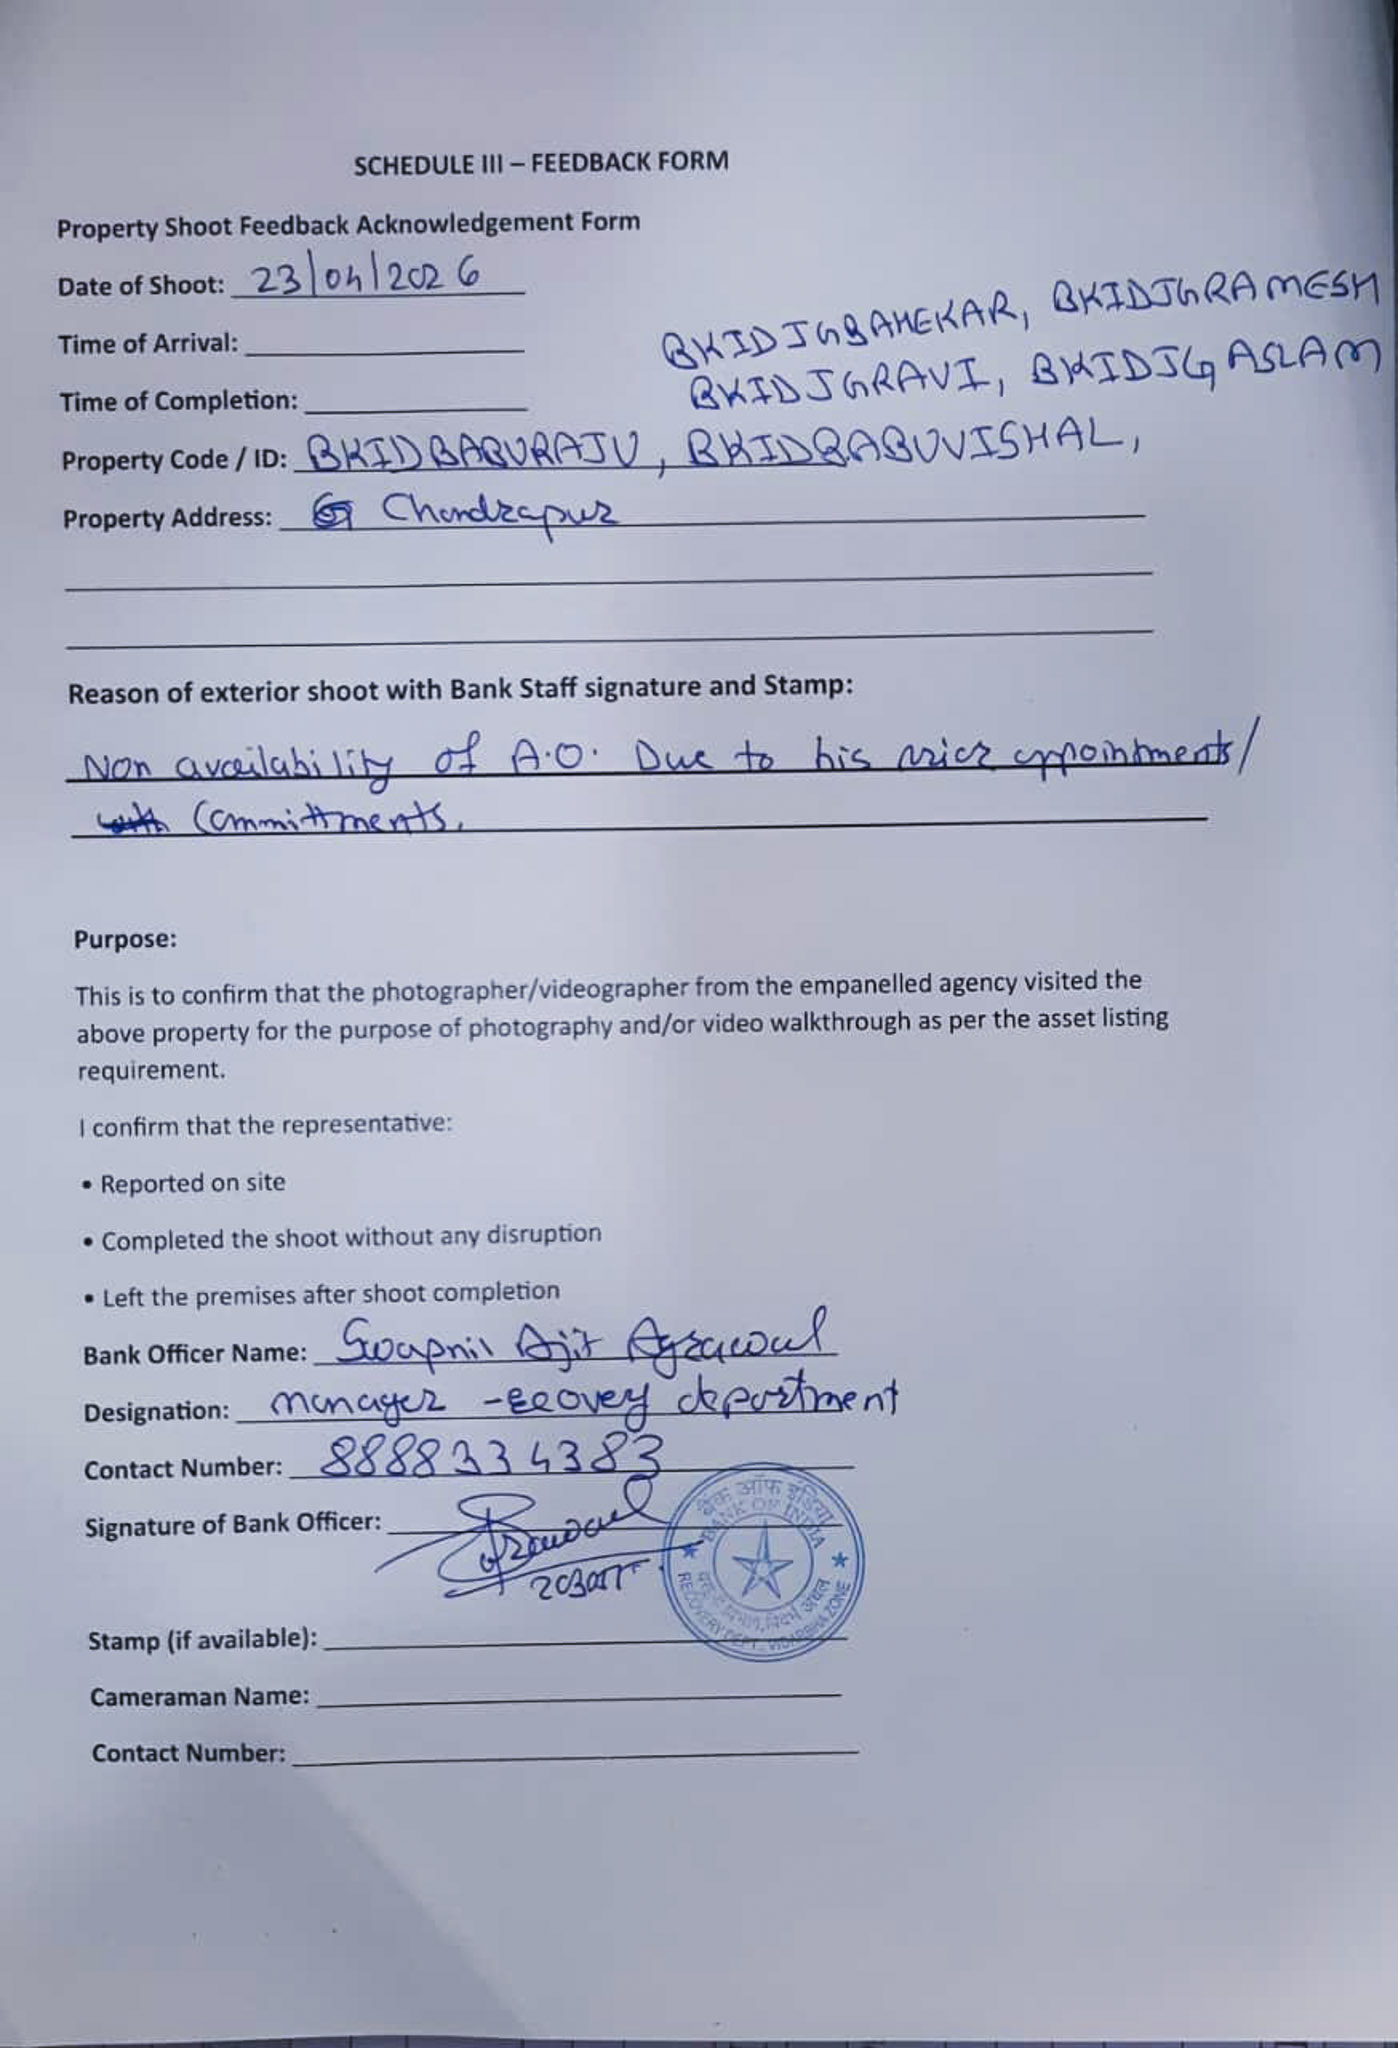 SCHEDULE III – FEEDBACK FORM
Property Shoot Feedback Acknowledgement Form
Date of Shoot: 23/04/2026
BKIDJGBAHEKAR, BKIDJGRAMESH
Time of Arrival:
BKIDJGRAVI, BKIDJGASLAM
Time of Completion:
Property Code / ID: BKIDBABURAJU, BKIDBABUVISHAL,
Property Address: Chandrapur
Reason of exterior shoot with Bank Staff signature and Stamp:
Non availability of A.O. Due to his prior appointments/
Committments.
Purpose:
This is to confirm that the photographer/videographer from the empanelled agency visited the
above property for the purpose of photography and/or video walkthrough as per the asset listing
requirement.
I confirm that the representative:
• Reported on site
• Completed the shoot without any disruption
• Left the premises after shoot completion
Bank Officer Name: Swapnil Ajit Agrawal
Designation: Manager - department
Contact Number: 8888334383
Signature of Bank Officer: Agrawal
बैंक ऑफ इंडिया
BANK OF INDIA
विभाग, विदर्भ अंचल
RECOVERY DEPT., VIDARBHA ZONE
Stamp (if available):
Cameraman Name:
Contact Number: